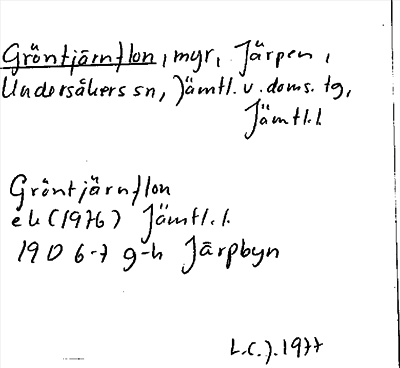 Gröntjärnflon, myr, Järpen,
Undersåkers sn, Jämtl. v. doms. tg,
Jämtl.l.
Gröntjärnflon
ek (1976) Jämtl.l.
19D 6-7 g-h Järpbyn
L.C.J. 1977